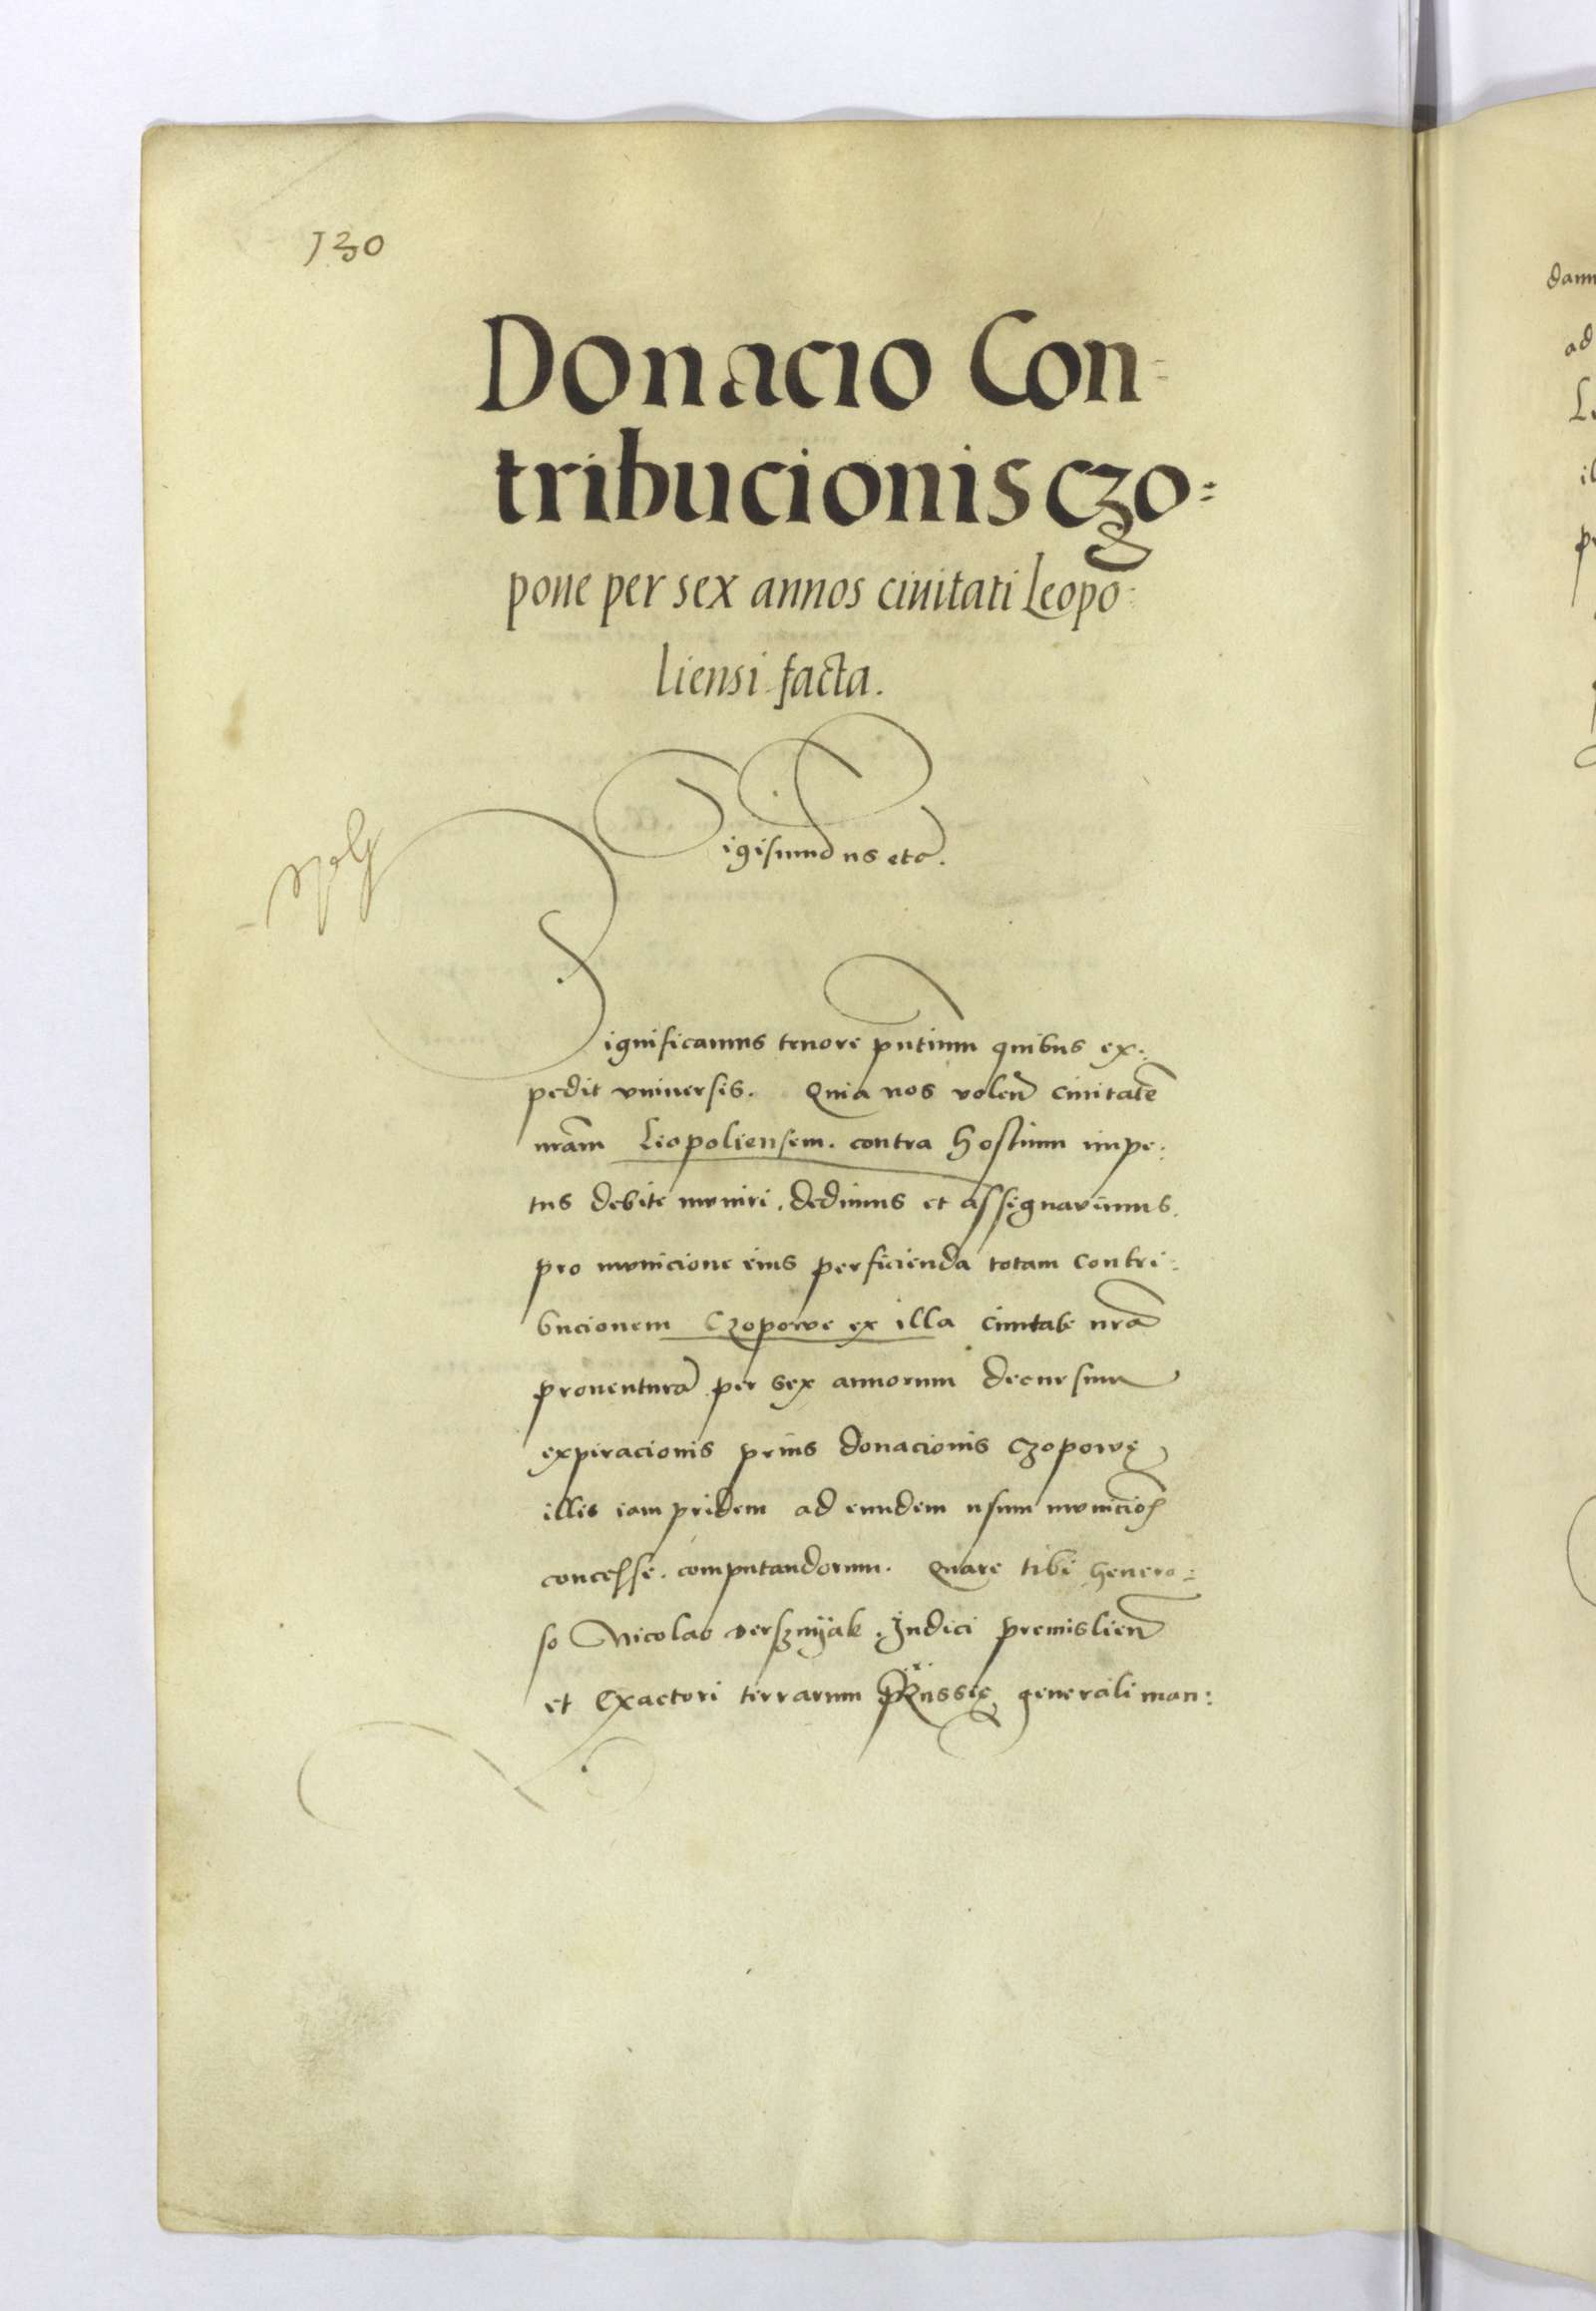 130
Donacio Con-
tribucionis czo:
poue per sex annos ciuitati Leopo-
liensi facta.
Sigismundus etc.
Significamus tenore pntium quibus ex:
pedit vniuersis. Quia nos volen ciuitatē
nram Leopoliensem. contra hostium impe:
tus debite muniri. dedimus et assignauimus.
pro municione eius perficienda totam contri:
bucionem Czopowe ex illa ciuitate nra
prouentura per sex annorum decursum
expiracionis prius donacionis czopowę
illis iam pridem ad eundem usum municiōs
concesse. computandorum. Quare tibi genero:
so Nicolao derszniyak. Judici premislien
et Exactori terrarum Russię generali man: